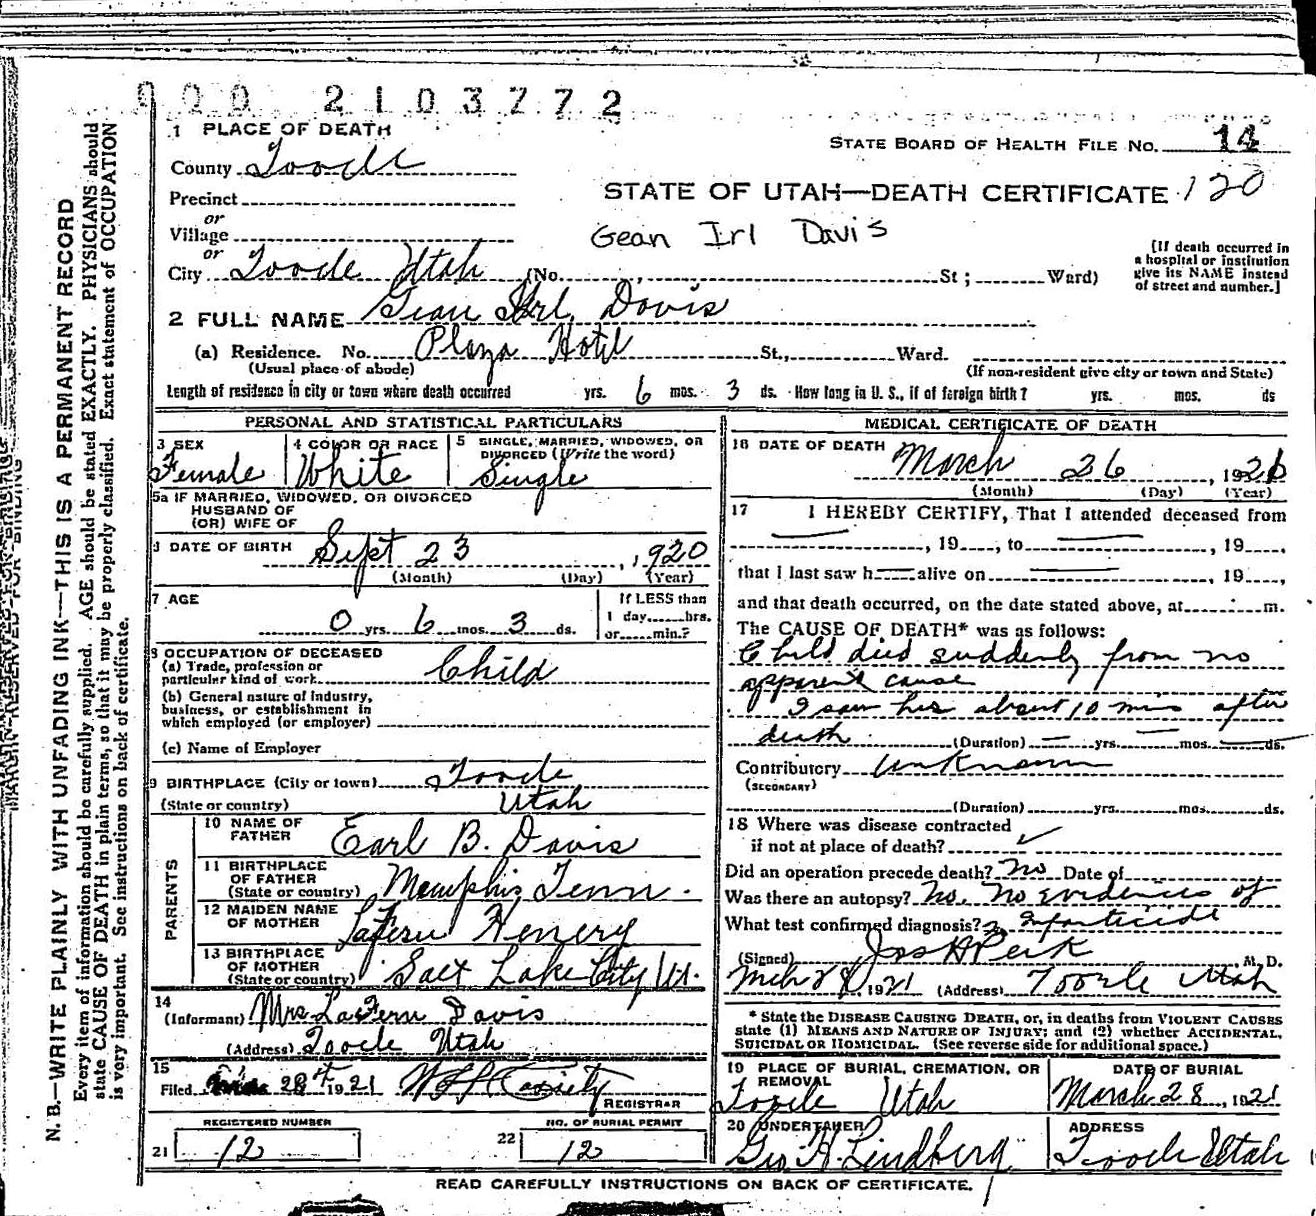 000 2103772
1 PLACE OF DEATH
STATE BOARD OF HEALTH FILE NO. 14
County Tooele
STATE OF UTAH—DEATH CERTIFICATE 120
Precinct
or
Village
Gean Irl Davis
or
City Tooele Utah (No. , St ; Ward)
[If death occurred in a hospital or institution give its NAME instead of street and number.]
2 FULL NAME Gean Irl Davis
(a) Residence. No. Plaza Hotel St., Ward.
(Usual place of abode) (If non-resident give city or town and State)
Length of residence in city or town where death occurred yrs. 6 mos. 3 ds. How long in U. S., if of foreign birth? yrs. mos. ds
PERSONAL AND STATISTICAL PARTICULARS
3 SEX Female
4 COLOR OR RACE White
5 SINGLE, MARRIED, WIDOWED, OR DIVORCED (Write the word) Single
5a IF MARRIED, WIDOWED, OR DIVORCED
HUSBAND OF
(OR) WIFE OF
DATE OF BIRTH Sept 23, 1920
(Month) (Day) (Year)
7 AGE
0 yrs. 6 mos. 3 ds.
If LESS than
1 day......hrs.
or......min.?
8 OCCUPATION OF DECEASED
(a) Trade, profession or
particular kind of work Child
(b) General nature of Industry,
business, or establishment in
which employed (or employer)
(c) Name of Employer
9 BIRTHPLACE (City or town) Tooele
(State or country) Utah
PARENTS
10 NAME OF FATHER Earl B. Davis
11 BIRTHPLACE OF FATHER (State or country) Memphis Tenn.
12 MAIDEN NAME OF MOTHER LaFern Henery
13 BIRTHPLACE OF MOTHER (State or country) Salt Lake City Ut.
14
(Informant) Mrs LaFern Davis
(Address) Tooele Utah
15
Filed 28th 1921
REGISTRAR
REGISTERED NUMBER
21 12
NO. OF BURIAL PERMIT
22 12
MEDICAL CERTIFICATE OF DEATH
16 DATE OF DEATH March 26, 192
(Month) (Day) (Year)
17 I HEREBY CERTIFY, That I attended deceased from
, 19 , to , 19 ,
that I last saw h alive on , 19 ,
and that death occurred, on the date stated above, at m.
The CAUSE OF DEATH* was as follows:
Child died suddenly from no
apparent cause
I saw her about 10 min after
death (Duration) yrs. mos. ds.
Contributory Unknown
(SECONDARY)
(Duration) yrs. mos. ds.
18 Where was disease contracted
if not at place of death?
Did an operation precede death? No Date of
Was there an autopsy? No. No evidences of
What test confirmed diagnosis? infanticide
(Signed) Jos H Peck M. D.
Mch 28, 1921 (Address) Tooele Utah
* State the DISEASE CAUSING DEATH, or, in deaths from VIOLENT CAUSES
state (1) MEANS AND NATURE OF INJURY; and (2) whether ACCIDENTAL,
SUICIDAL OR HOMICIDAL. (See reverse side for additional space.)
19 PLACE OF BURIAL, CREMATION, OR REMOVAL
Tooele Utah
DATE OF BURIAL
March 28, 1921
20 UNDERTAKER
Geo. H. Lindberg
ADDRESS
Tooele Utah
READ CAREFULLY INSTRUCTIONS ON BACK OF CERTIFICATE.
MARGIN RESERVED FOR BINDING
N. B.—WRITE PLAINLY WITH UNFADING INK—THIS IS A PERMANENT RECORD
Every item of information should be carefully supplied. AGE should be stated EXACTLY. PHYSICIANS should
state CAUSE OF DEATH in plain terms, so that it may be properly classified. Exact statement of OCCUPATION
is very important. See instructions on back of certificate.